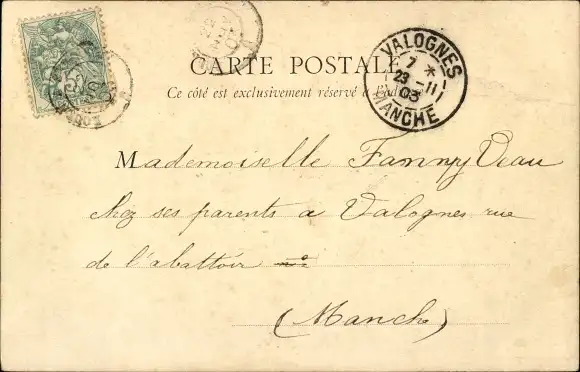 CARTE POSTALE
Ce côté est exclusivement réservé à l'ad
VALOGNES
7 *
23 -11
03
MANCHE
5
Mademoiselle Fanny Veau
chez ses parents a Valognes rue
de l'abattoir
(Manche)